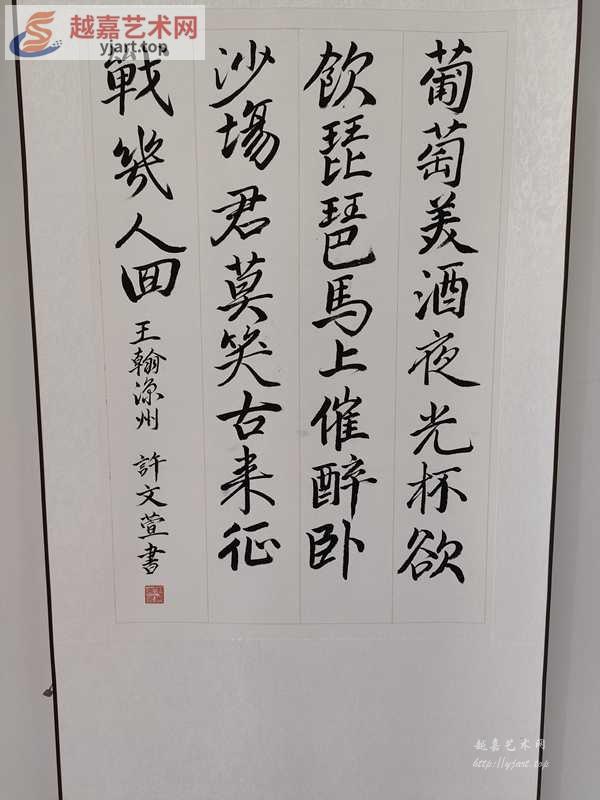 越嘉艺术网
yjart.top
葡萄美酒夜光杯欲
飲琵琶馬上催醉卧
沙場君莫笑古来征
戰幾人回
王翰涼州
許文萱書
越嘉艺术网
http://yjart.top